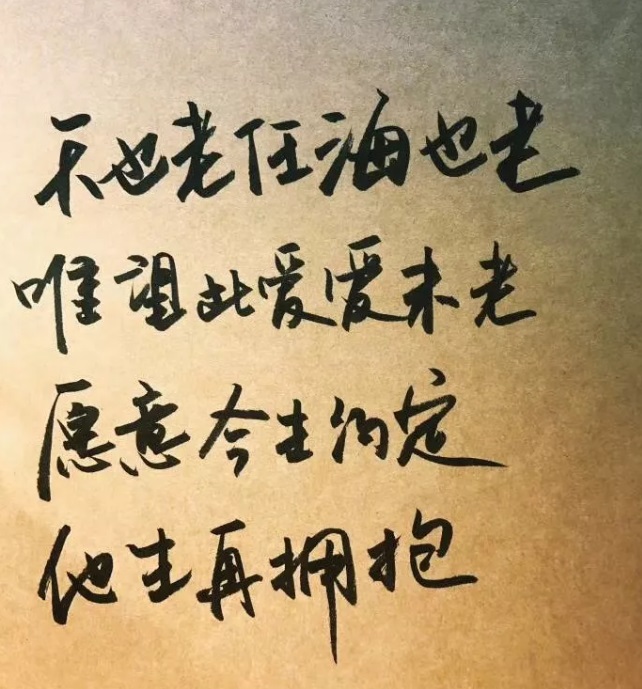 天也老任海也老
唯望此爱爱未老
愿意今生约定
他生再拥抱